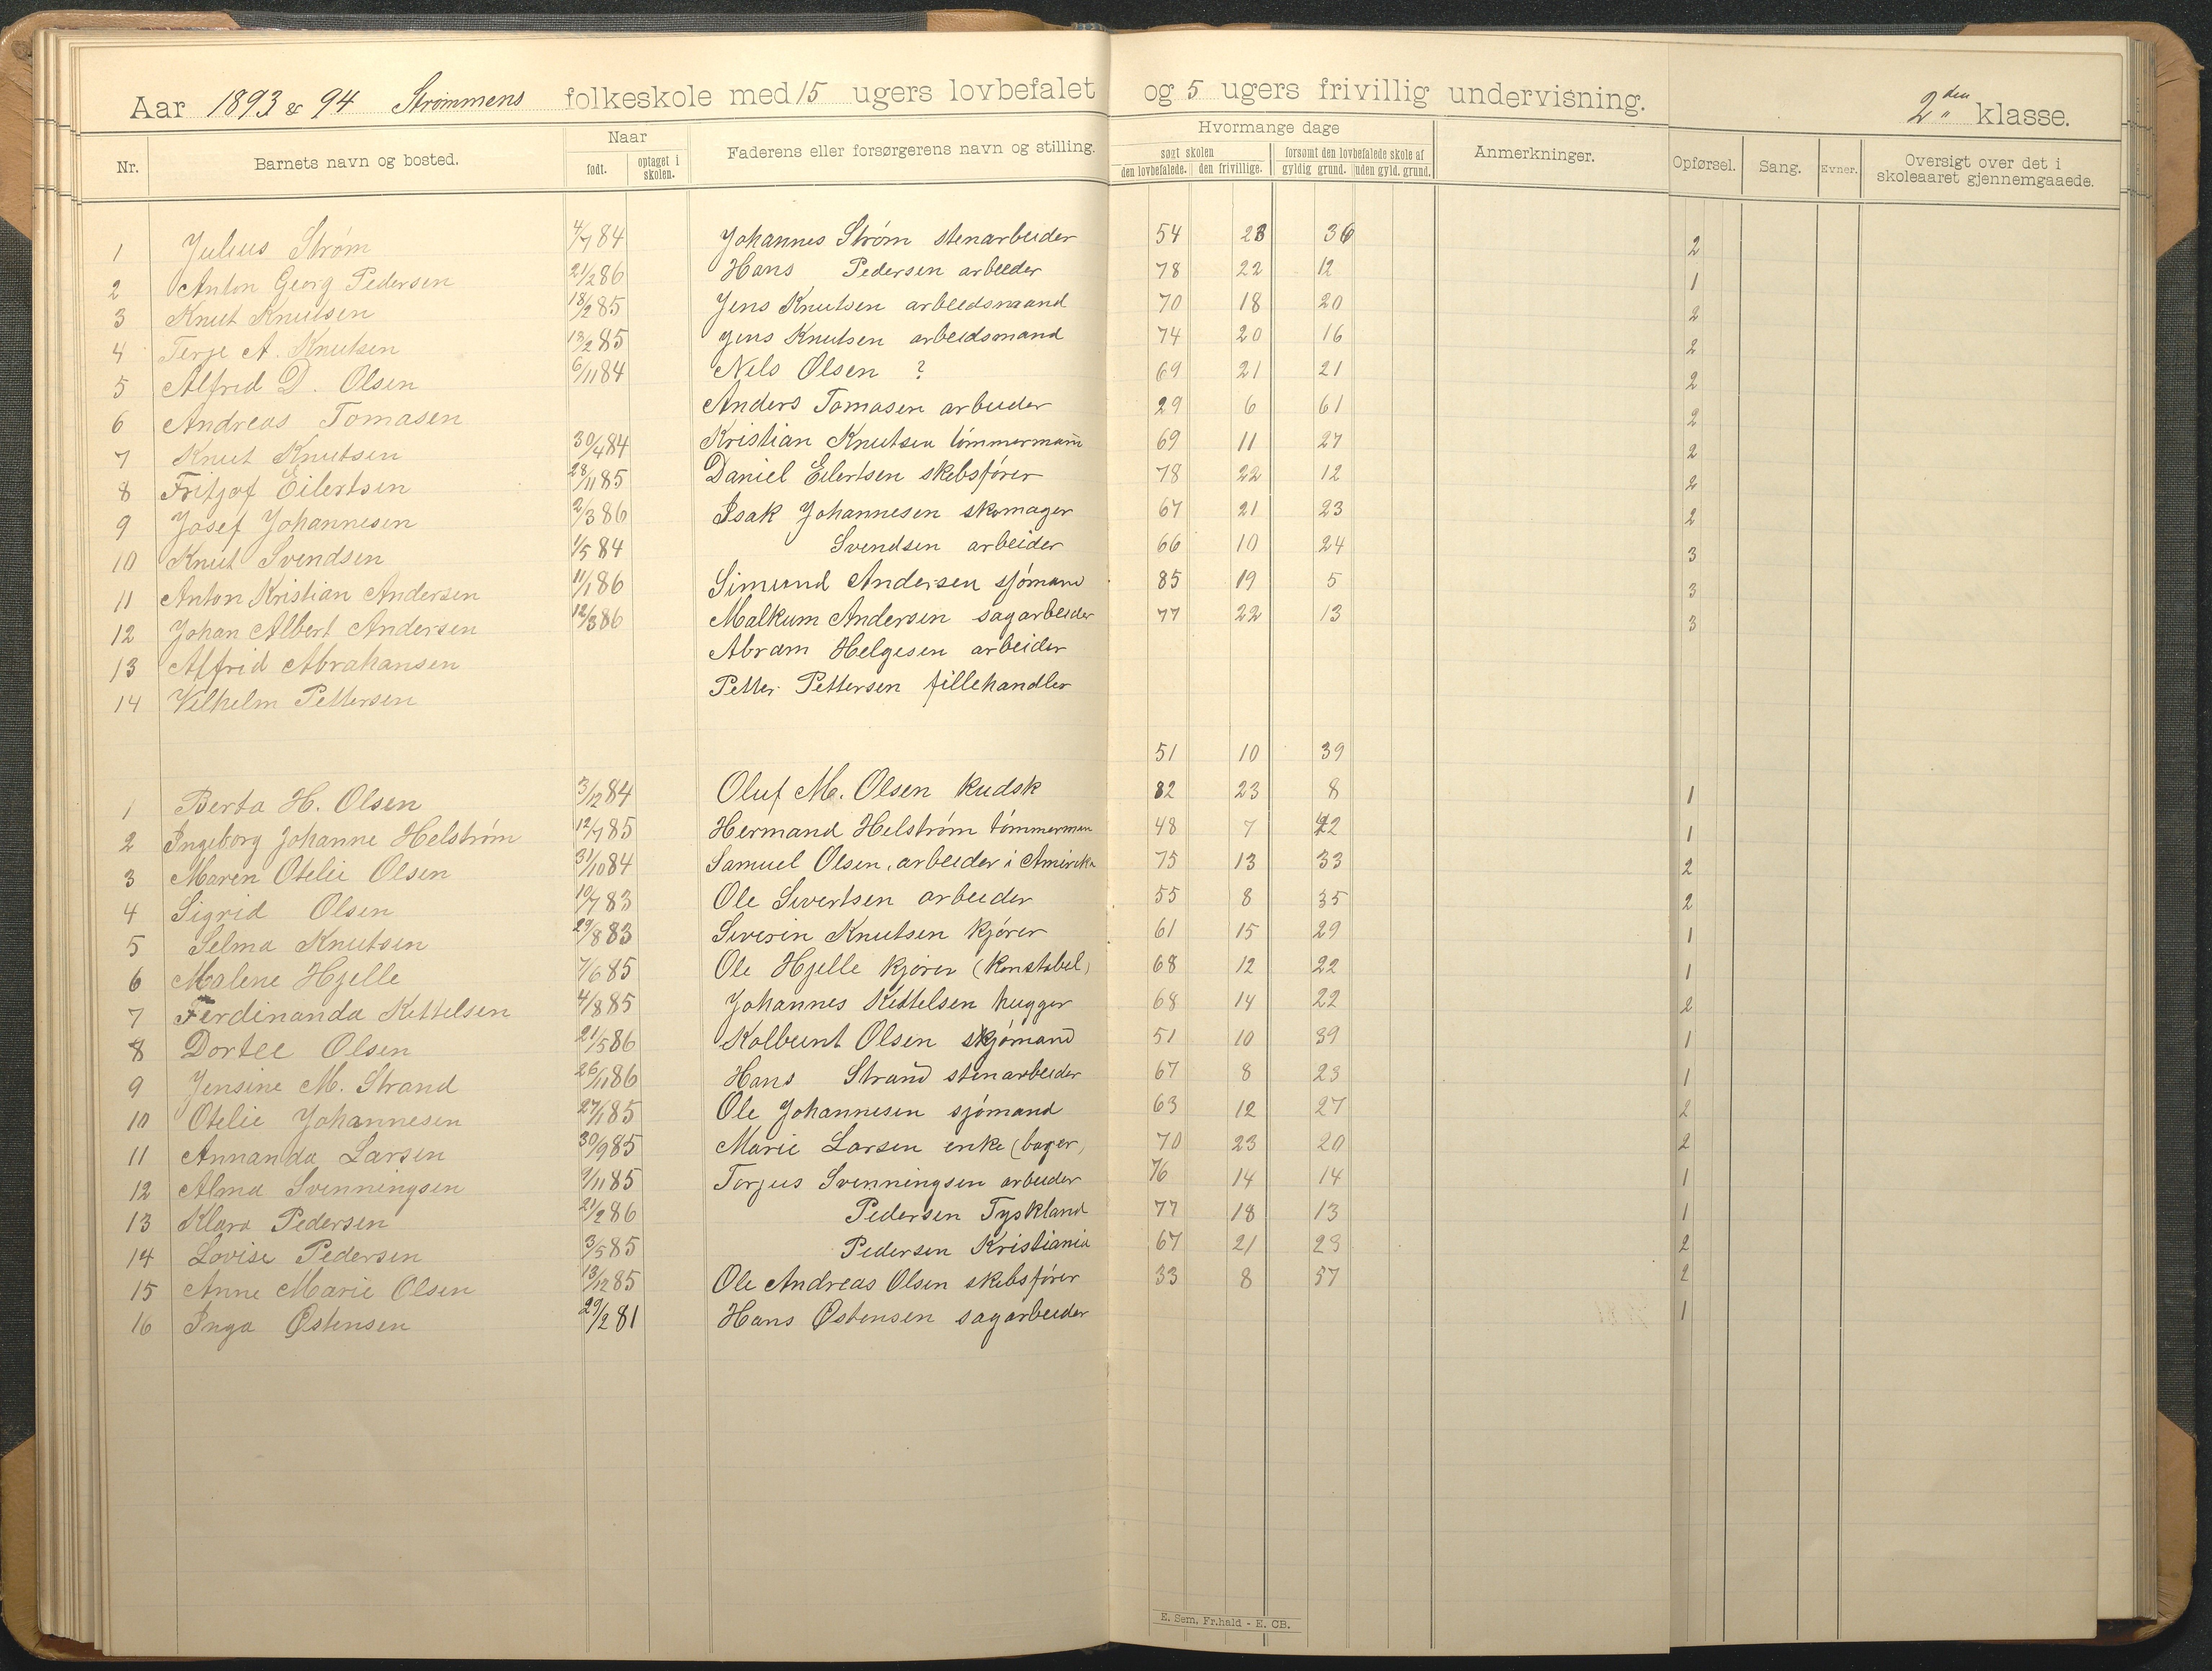 Aar 1893 & 94 Strømmens folkeskole med 15 ugers lovbefalet og 5 ugers frivillig undervisning. 2den klasse.
Nr. Barnets navn og bosted. Naar født. optaget i skolen. Faderens eller forsørgerens navn og stilling. Hvormange dage søgt skolen den lovbefalede. den frivillige. forsømt den lovbefalede skole af gyldig grund. uden gyld. grund. Anmerkninger. Opførsel. Sang. Evner. Oversigt over det i skoleaaret gjennemgaaede.
1 Julius Strøm 4/7 84 Johannes Strøm stenarbeider 54 23 36 2
2 Anton Georg Pedersen 21/2 86 Hans Pedersen arbeider 78 22 12 1
3 Knut Knutsen 18/2 85 Jens Knutsen arbeidsmand 70 18 20 2
4 Terje A. Knutsen 13/2 85 Jens Knutsen arbeidsmand 74 20 16 2
5 Alfred D. Olsen 6/11 84 Nels Olsen ? 69 21 21 2
6 Andreas Tomasen Anders Tomasen arbeider 29 6 61 2
7 Knut Knutsen 30/4 84 Kristian Knutsen tømmermann 69 11 27 2
8 Fritjof Eilertsen 28/11 85 Daniel Eilertsen skibsfører 78 22 12 2
9 Josef Johannesen 2/3 86 Isak Johannesen skomager 67 21 23 2
10 Knut Svendsen 1/5 84 Svendsen arbeider 66 10 24 3
11 Anton Kristian Andersen 11/1 86 Simund Andersen sjømand 85 19 5 3
12 Johan Albert Andersen 12/3 86 Malkum Andersen sagarbeider 77 22 13 3
13 Alfrid Abrahansen Abram Helgesen arbeider
14 Vilhelm Pettersen Petter Pettersen fillehandler
51 10 39
1 Berta H. Olsen 3/12 84 Oluf M. Olsen kudsk 82 23 8 1
2 Ingeborg Johanne Helstrøm 12/7 85 Hermand Helstrøm tømmerman 48 7 42 1
3 Maren Otelie Olsen 31/10 84 Samuel Olsen, arbeider i Amirika 75 13 33 2
4 Sigrid Olsen 10/7 83 Ole Sivertsen arbeider 55 8 35 2
5 Selma Knutsen 29/8 83 Siverin Knutsen kjører 61 15 29 1
6 Malene Hjelle 7/6 85 Ole Hjelle kjører (Konstabel) 68 12 22 1
7 Ferdinanda Kittelsen 4/8 85 Johannes Kittelsen hugger 68 14 22 2
8 Dortee Olsen 21/5 86 Kolbeint Olsen sjømand 51 10 39 1
9 Jensine M. Strand 26/11 86 Hans Strand stenarbeider 67 8 23 1
10 Otelie Johannesen 27/1 85 Ole Johannesen sjømand 63 12 27 2
11 Annanda Larsen 30/9 85 Marie Larsen enke (bager) 70 23 20 2
12 Alma Svenningsen 9/11 85 Torjus Svenningsen arbeider 76 14 14 1
13 Klara Pedersen 21/2 86 Pedersen Tyskland 77 18 13 1
14 Lovise Pedersen 3/5 85 Pedersen Kristiania 67 21 23 2
15 Anne Marie Olsen 13/12 85 Ole Andreas Olsen skibsfører 33 8 57 2
16 Inga Østensen 29/2 81 Hans Østensen sagarbeider 1
E. Sem. Fr.hald - E. CB.